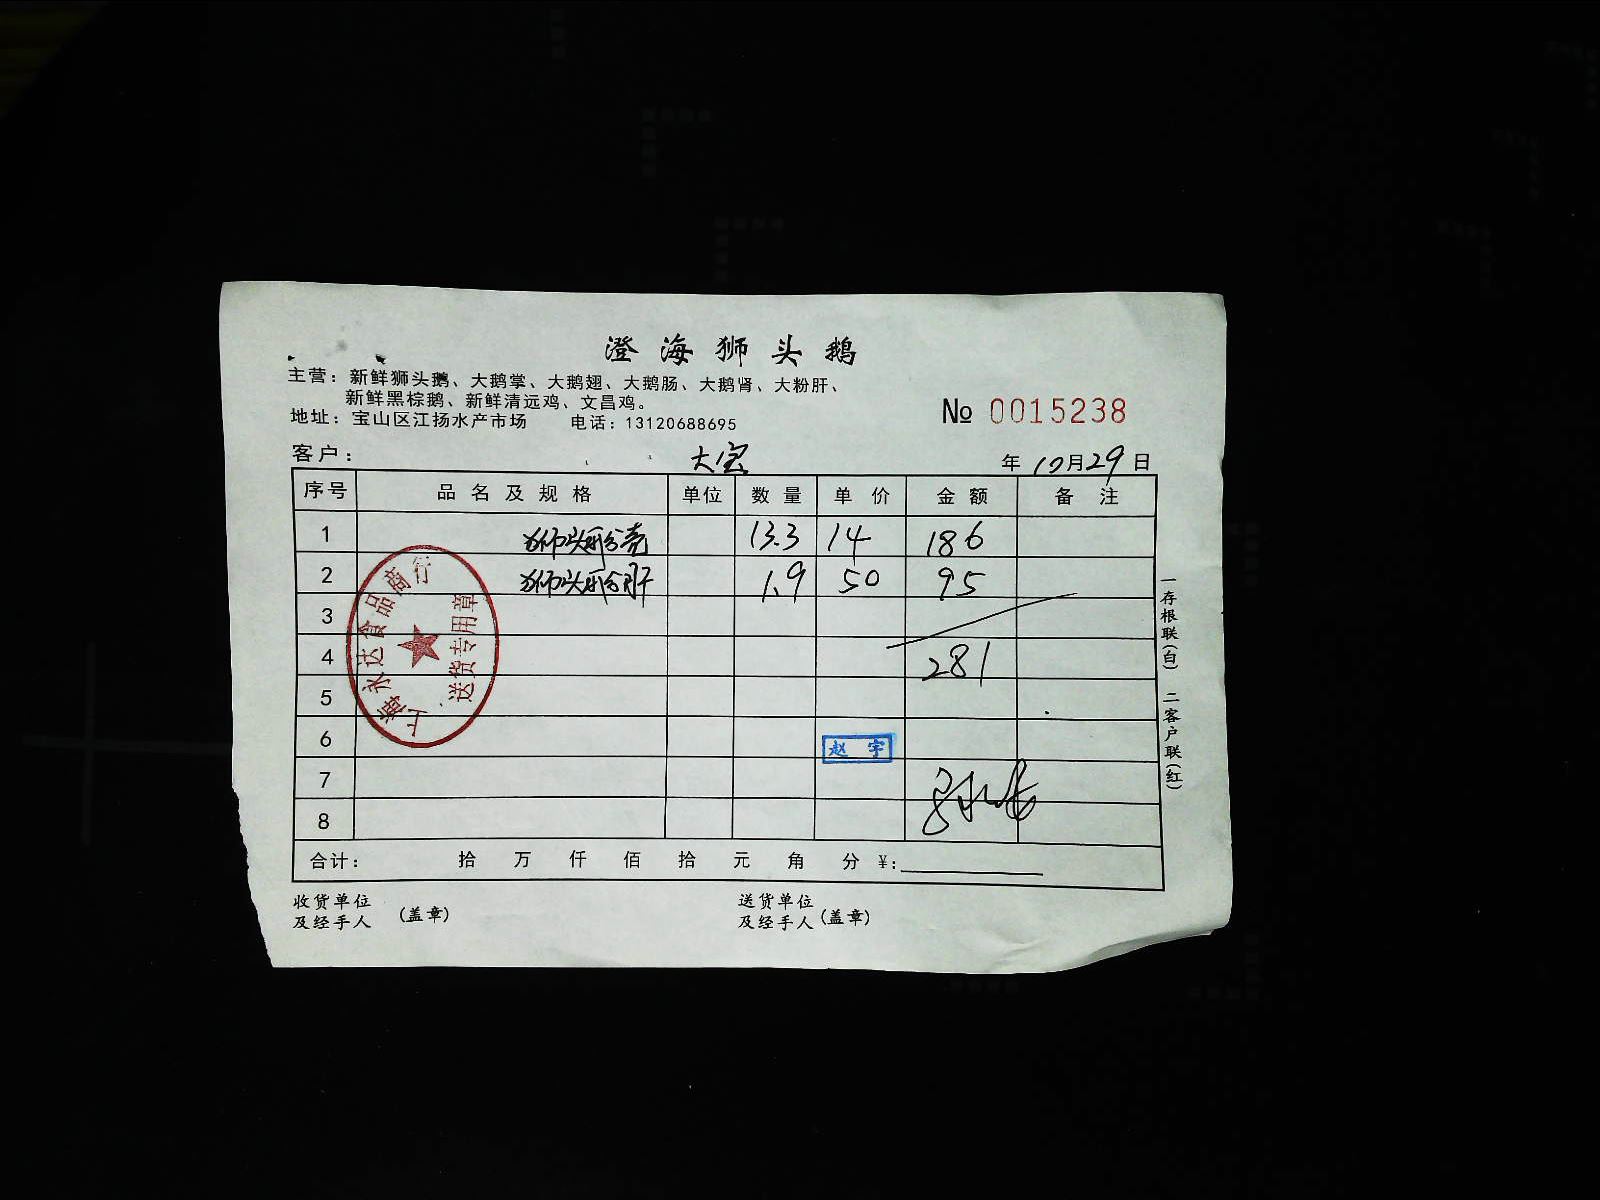 澄海狮头鹅
主营：新鲜狮头鹅、大鹅掌、大鹅翅、大鹅肠、大鹅肾、大粉肝、
新鲜黑棕鹅、新鲜清远鸡、文昌鸡。
地址：宝山区江扬水产市场 电话：13120688695
№ 0015238
客户： 大宝 年 10月29日
序号 品名及规格 单位 数量 单价 金额 备注
1 狮头鹅壳 13.3 14 186
2 狮头鹅肝 1.9 50 95
3
4 281
5
6 赵宇
7
8
合计： 拾 万 仟 佰 拾 元 角 分 ¥:
收货单位 送货单位
及经手人 (盖章) 及经手人 (盖章)
一存根联(白) 二客户联(红)
上海永达食品商行
送货专用章